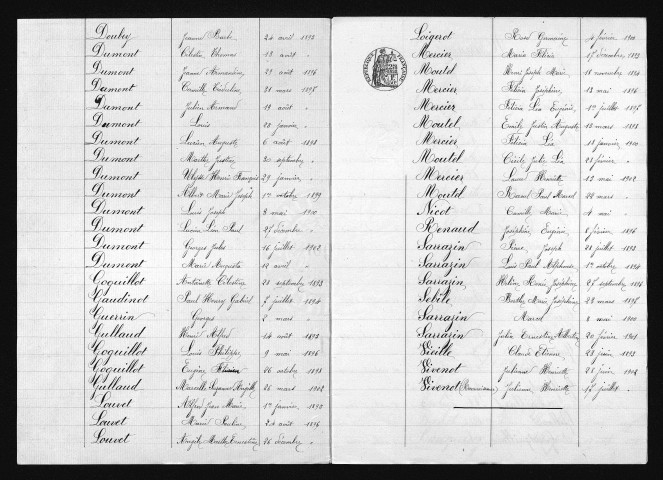 Doubey Jeanne Berthe 24 avril 1893
Dumont Célestin Thomas 13 août "
Dumont Jeanne 29 août 1896
Dumont Camille 31 mars 1895
Dumont Julien Armand 19 août "
Dumont Louis 23 janvier "
Dumont Lucien Auguste 6 août 1898
Dumont Marthe Justine 30 septembre "
Dumont Ulysse Henri François 29 janvier "
Dumont Albert Marie Joseph 17 octobre 1899
Dumont Louis Joseph 8 mai 1900
Dumont Lucien Léon Paul 27 décembre "
Dumont Georges Jules 16 juillet 1902
Dumont Marie Augusta 12 avril "
Goguillot Antoinette Célestine 28 septembre 1893
Gaudinot Paul Henry Gabriel 7 juillet 1894
Guerrin Georges 2 mars "
Gullaud Henri Alfred 14 août 1893
Goguillot Louis Philippe 9 mai 1896
Goguillot Eugène 26 octobre 1893
Gullaud Marcelle Suzanne 26 mars 1902
Louvet Alfred Jean Marie 17 janvier 1893
Louvet Marie Pauline 24 août 1896
Louvet Angèle Marthe Ernestine 26 décembre "
Loigerot Rose Germaine 4 février 1900
Mercier Maria 17 décembre 1893
Moutel Henri Joseph Marie 18 novembre 1894
Mercier Félicie Joséphine 13 mai 1896
Mercier Félicie Lia Eugénie 1er juillet 1895
Moutel Emile Justin Auguste 13 mars 1898
Mercier Félicie Lia 18 janvier 1900
Moutel Cécile Julie Lia 21 février "
Mercier Laure Henriette 13 mai 1902
Moutel Raoul Paul Marcel 24 mars "
Nicot Camille Marie 4 mai "
Renaud Joséphine Eugénie 8 février 1896
Sarrazin Joseph 21 juillet 1893
Sarrazin Louis Paul Alphonse 1er octobre 1894
Sarrazin Hélène Henri Joséphine 27 septembre 1896
Sebile Berthe Marie Joséphine 23 mars 1895
Sarrazin Marcel 8 mai 1900
Sarrazin Julia Ernestine Albertine 20 février 1901
Vieille Claude Etienne 23 juin 1893
Vivenot Julienne Henriette 28 juin 1902
Vivenot (Reconnaissance) Julienne Henriette 12 juillet "